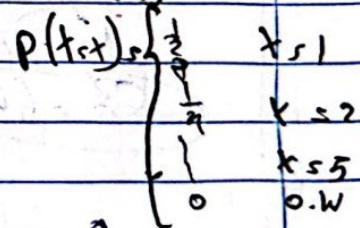 P(x=x)={ 1/2 x=1
1/4 x=2
x=5
0 o.w